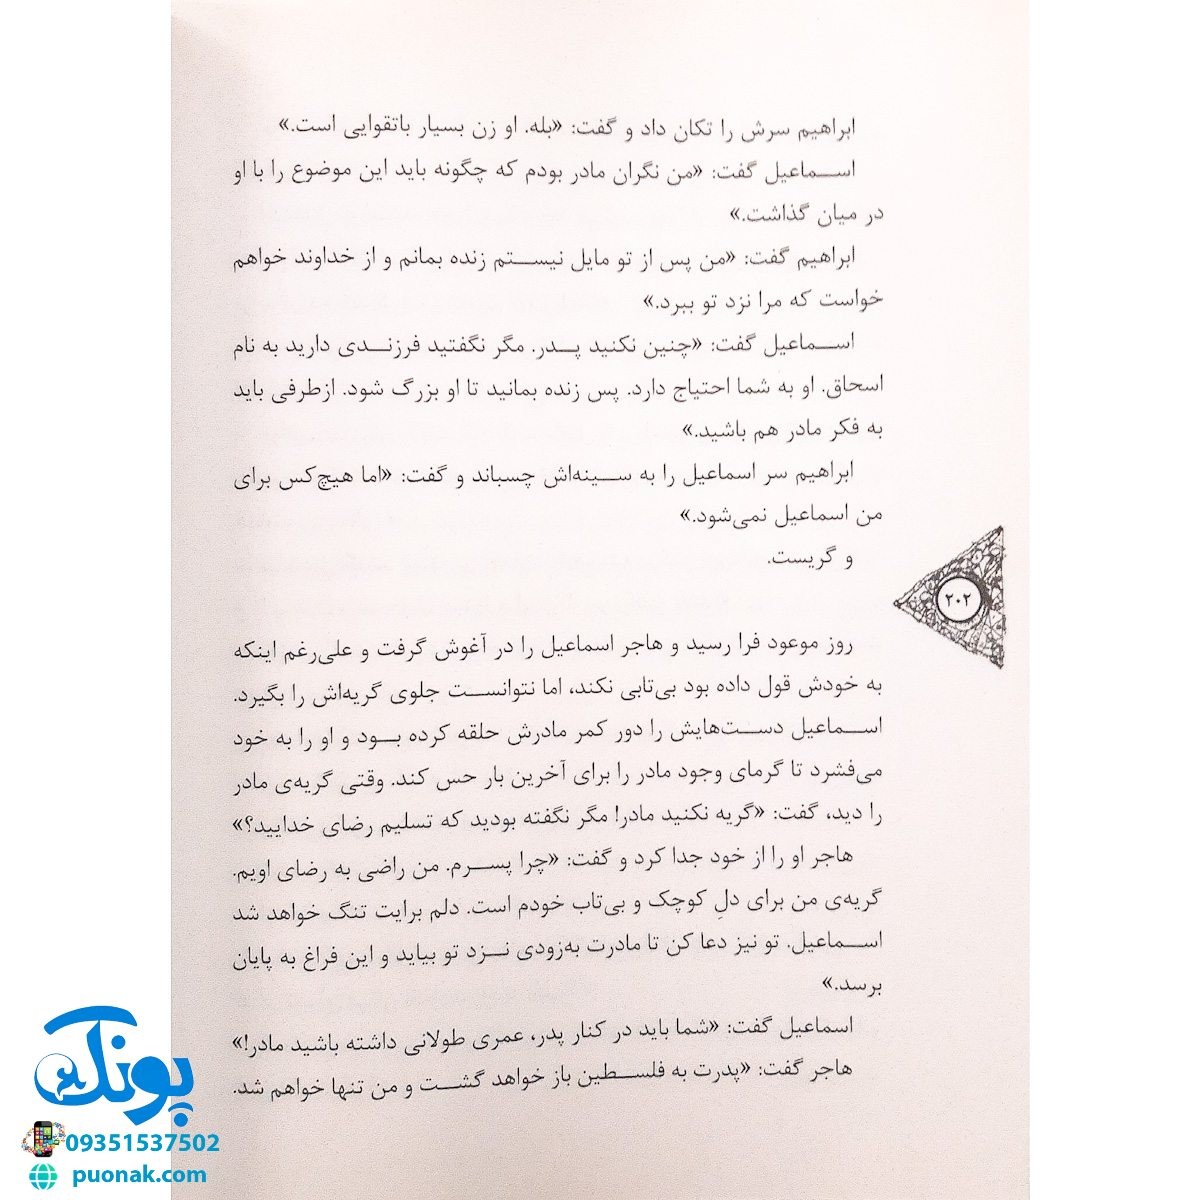 ابراهیم سرش را تکان داد و گفت: «بله. او زن بسیار باتقوایی است.»
اسماعیل گفت: «من نگران مادر بودم که چگونه باید این موضوع را با او
در میان گذاشت.»
ابراهیم گفت: «من پس از تو مایل نیستم زنده بمانم و از خداوند خواهم
خواست که مرا نزد تو ببرد.»
اسماعیل گفت: «چنین نکنید پدر. مگر نگفتید فرزندی دارید به نام
اسحاق. او به شما احتیاج دارد. پس زنده بمانید تا او بزرگ شود. ازطرفی باید
به فکر مادر هم باشید.»
ابراهیم سر اسماعیل را به سینه‌اش چسباند و گفت: «اما هیچ‌کس برای
من اسماعیل نمی‌شود.»
و گریست.
۲۰۲
روز موعود فرا رسید و هاجر اسماعیل را در آغوش گرفت و علی‌رغم اینکه
به خودش قول داده بود بی‌تابی نکند، اما نتوانست جلوی گریه‌اش را بگیرد.
اسماعیل دست‌هایش را دور کمر مادرش حلقه کرده بود و او را به خود
می‌فشرد تا گرمای وجود مادر را برای آخرین بار حس کند. وقتی گریه‌ی مادر
را دید، گفت: «گریه نکنید مادر! مگر نگفته بودید که تسلیم رضای خدایید؟»
هاجر او را از خود جدا کرد و گفت: «چرا پسرم. من راضی به رضای اویم.
گریه‌ی من برای دلِ کوچک و بی‌تاب خودم است. دلم برایت تنگ خواهد شد
اسماعیل. تو نیز دعا کن تا مادرت به‌زودی نزد تو بیاید و این فراغ به پایان
برسد.»
اسماعیل گفت: «شما باید در کنار پدر، عمری طولانی داشته باشید مادر!»
هاجر گفت: «پدرت به فلسطین باز خواهد گشت و من تنها خواهم شد.
پونک
09351537502
puonak.com